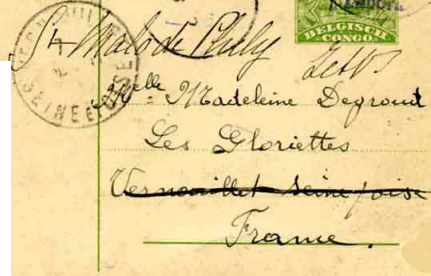 BELGISCH
CONGO
St Malo de Phily
Mlle Madeleine Degroud
Les Gloriettes
Vernouillet Seine & oise
France.